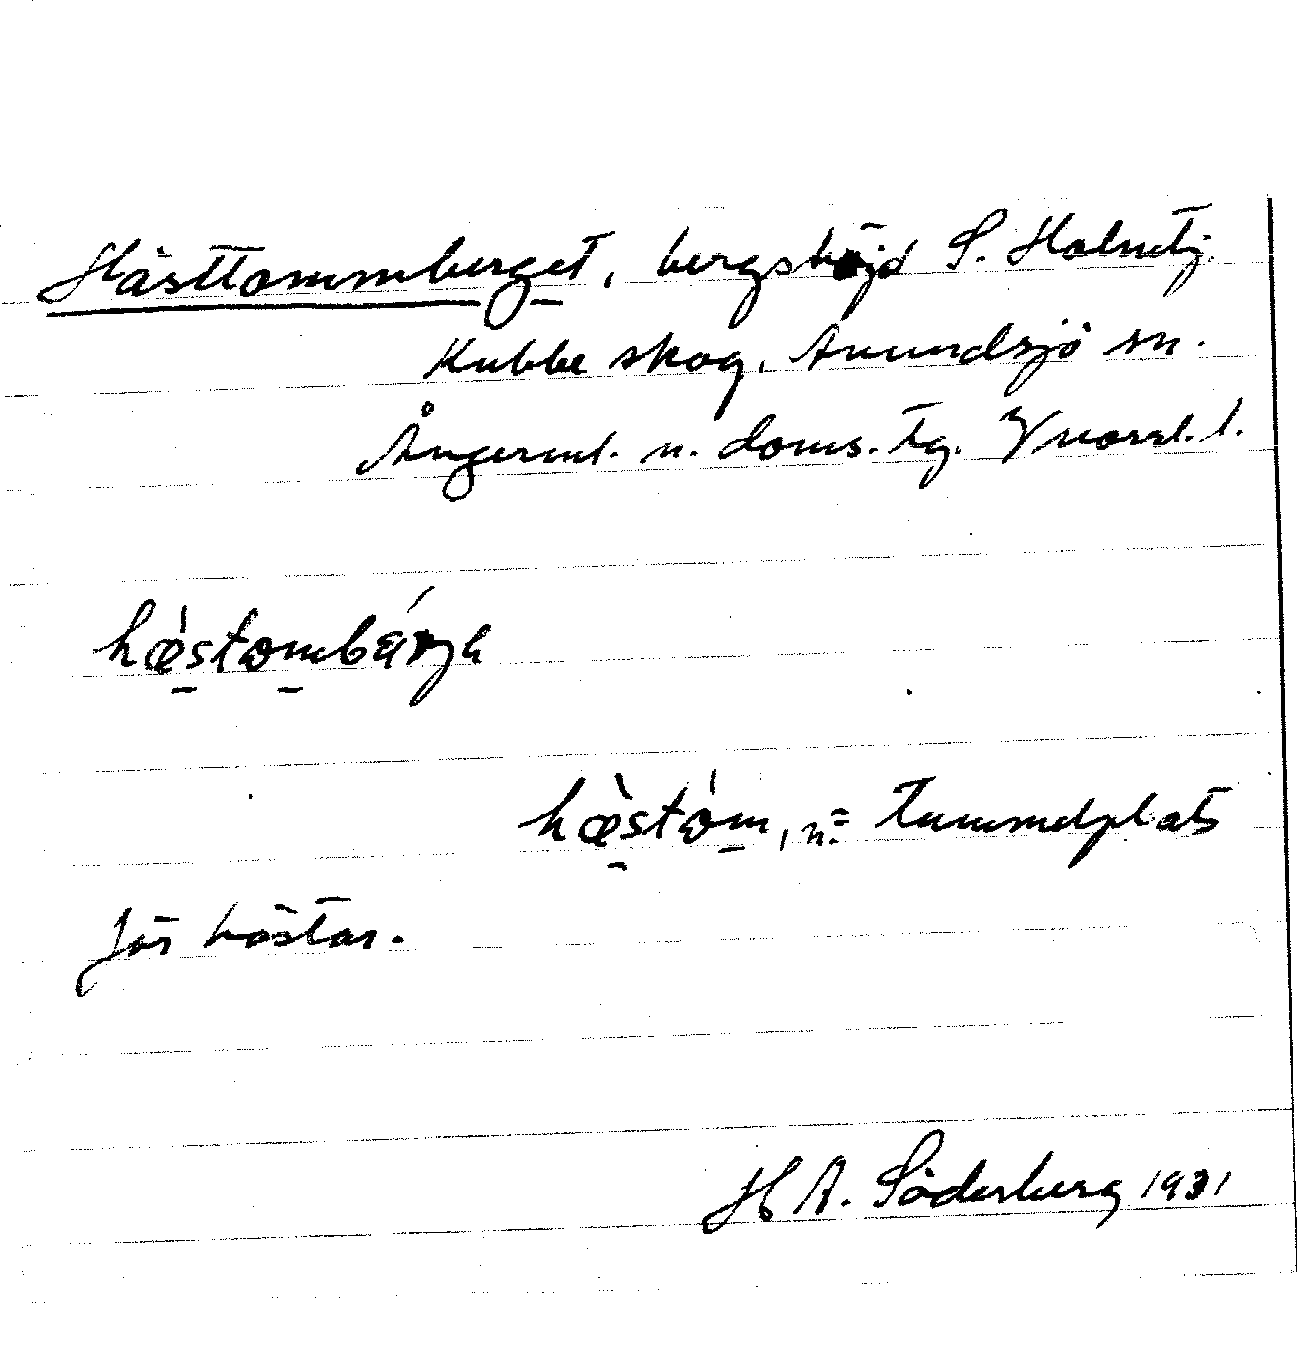 Hästtommberget, bergshöjd S. Holmtj.
Kubbe skog, Anundsjö sn.
Ångerml. n. doms. tg. Vnorrl. l.
hæstombärje
hæstom, n. = tummelplats
för hästar.
H A. Söderberg 1931